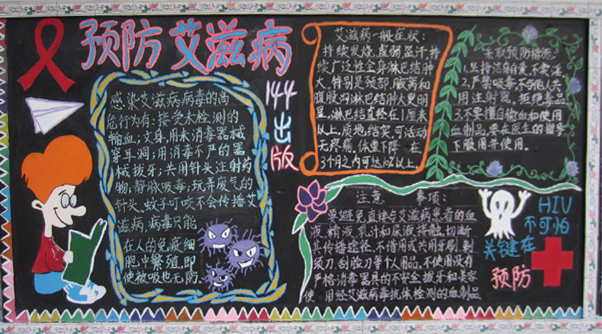 预防艾滋病
144出版
感染艾滋病病毒的高
危行为有:接受未检测的
输血;文身,用未消毒器械
穿耳洞;用消毒不严的器
械拔牙;共用针头注射药
物,静脉吸毒;玩弄废气的
针头,蚊子叮咬不会传播艾
滋病,病毒只能
在人的免疫细
胞中繁殖,即
使被吸也无防.
艾滋病一般症状:
持续发烧,虚弱盗汗,持
续广泛性全身淋巴结肿
大,特别是颈部,腋窝和
腹股沟淋巴结肿大更明
显,淋巴结直径在1厘米
以上,质地结实,可活动
无疼痛,体重下降,在
3个月之内可达10%以上,
采取预防措施
1.坚持洁身自爱,不卖淫
2.严禁吸毒,不与他人共
用注射器,拒绝毒品.
3.不要擅自输血和使用
血制品,要在医生的指导
下服用并使用.
注意事项:
要避免直接与艾滋病患者的血
液,精液,乳汁和尿液接触,切断
其传播途径,不借用或共用牙刷,剃
须刀,刮脸刀等个人用品,不使用没有
严格消毒器具的不安全拔牙和美容
使用经艾滋病毒抗体检测的血制品.
HIV
不可怕
关键在
预防